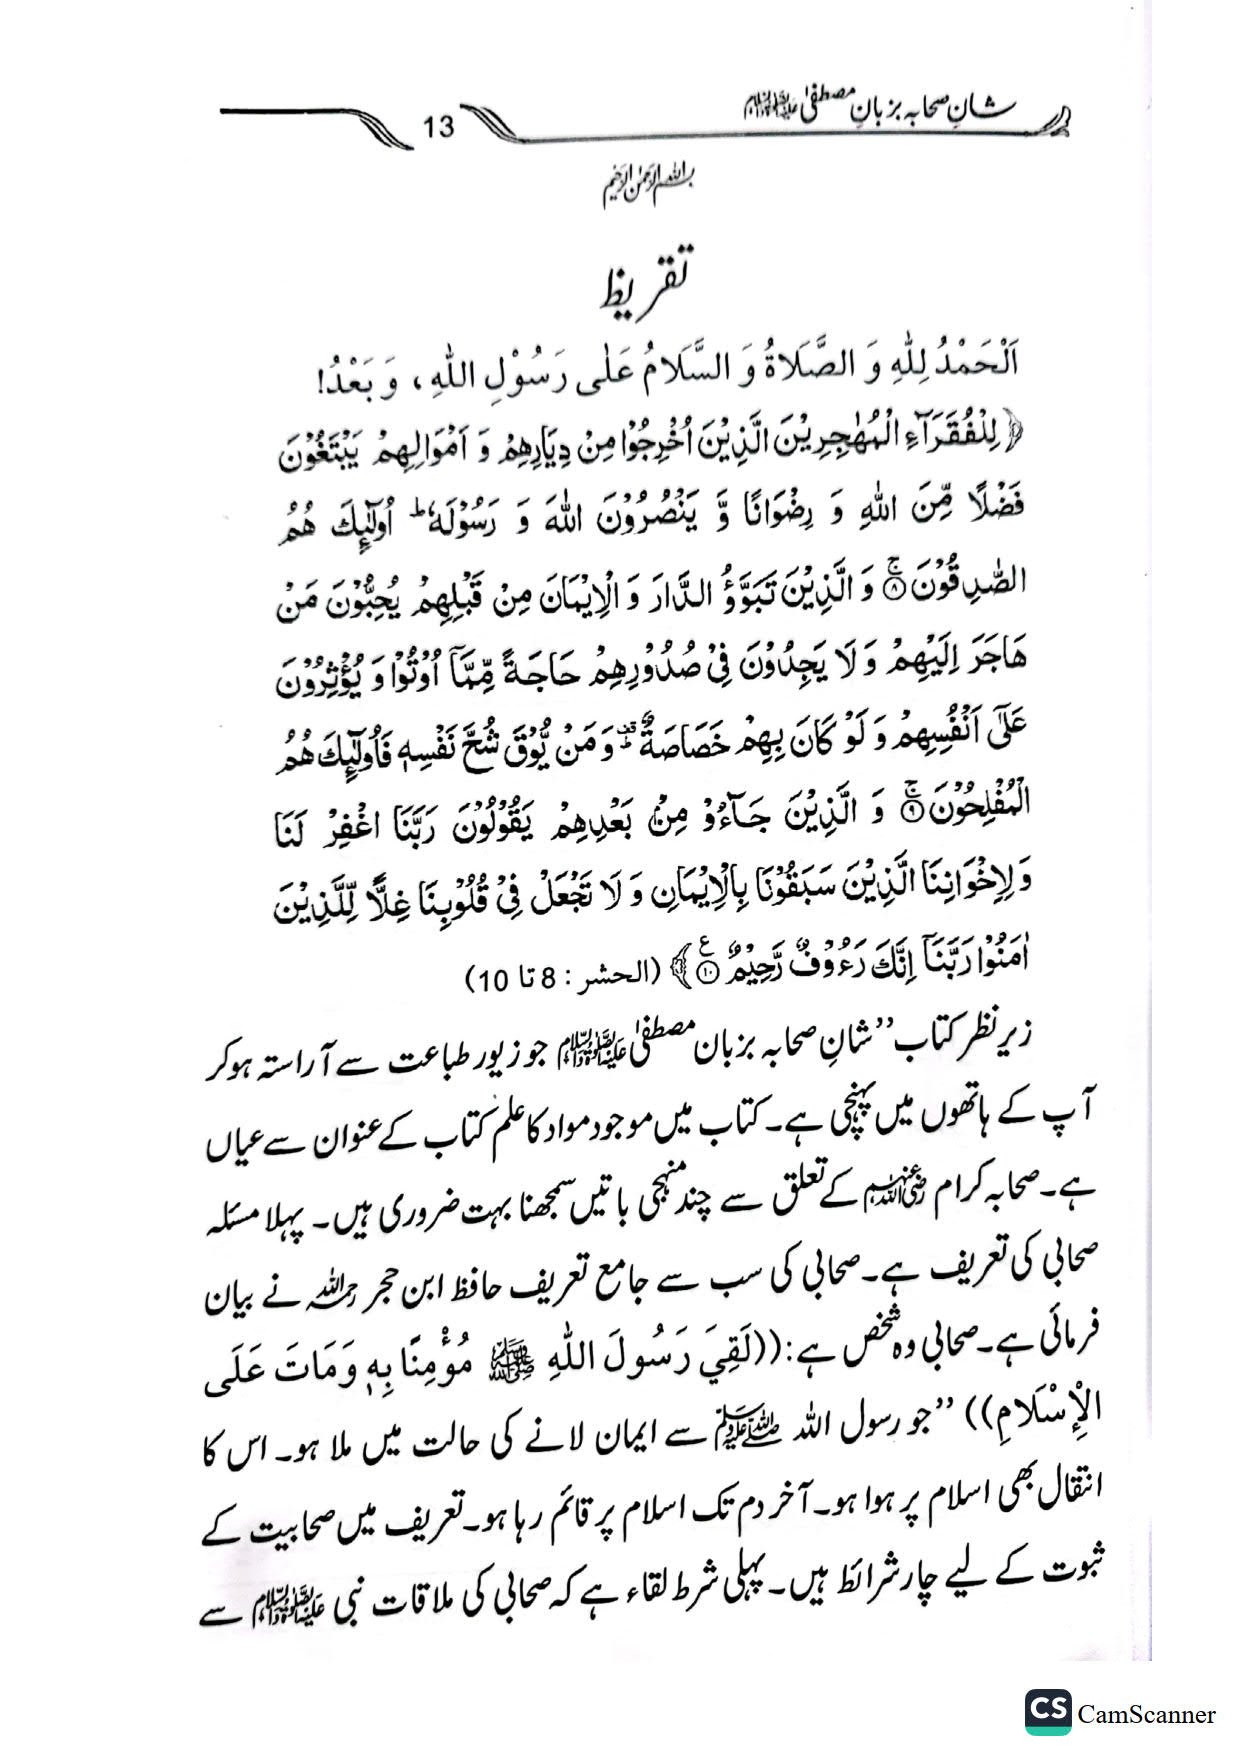 شانِ صحابہ بزبانِ مصطفیٰ ﷺ
13
بسم اللہ الرحمن الرحیم
تقریظ
اَلْحَمْدُ لِلّٰهِ وَ الصَّلَاةُ وَ السَّلَامُ عَلٰى رَسُوْلِ اللّٰهِ ، وَ بَعْدُ!
﴿ لِلْفُقَرَآءِ الْمُهٰجِرِيْنَ الَّذِيْنَ اُخْرِجُوْا مِنْ دِيَارِهِمْ وَ اَمْوَالِهِمْ يَبْتَغُوْنَ
فَضْلًا مِّنَ اللّٰهِ وَ رِضْوَانًا وَّ يَنْصُرُوْنَ اللّٰهَ وَ رَسُوْلَهٗ ؕ اُولٰٓئِكَ هُمُ
الصّٰدِقُوْنَ ۚ۝۸ وَ الَّذِيْنَ تَبَوَّؤُ الدَّارَ وَ الْاِيْمَانَ مِنْ قَبْلِهِمْ يُحِبُّوْنَ مَنْ
هَاجَرَ اِلَيْهِمْ وَ لَا يَجِدُوْنَ فِيْ صُدُوْرِهِمْ حَاجَةً مِّمَّاۤ اُوْتُوْا وَ يُؤْثِرُوْنَ
عَلٰۤى اَنْفُسِهِمْ وَ لَوْ كَانَ بِهِمْ خَصَاصَةٌ ؕ۫ وَ مَنْ يُّوْقَ شُحَّ نَفْسِهٖ فَاُولٰٓئِكَ هُمُ
الْمُفْلِحُوْنَ ۚ۝۹ وَ الَّذِيْنَ جَآءُوْ مِنْۢ بَعْدِهِمْ يَقُوْلُوْنَ رَبَّنَا اغْفِرْ لَنَا
وَ لِاِخْوَانِنَا الَّذِيْنَ سَبَقُوْنَا بِالْاِيْمَانِ وَ لَا تَجْعَلْ فِيْ قُلُوْبِنَا غِلًّا لِّلَّذِيْنَ
اٰمَنُوْا رَبَّنَاۤ اِنَّكَ رَءُوْفٌ رَّحِيْمٌ ۝۱۰ع ﴾ (الحشر : 8 تا 10)
زیر نظر کتاب ”شانِ صحابہ بزبان مصطفیٰ ﷺ جو زیور طباعت سے آراستہ ہوکر
آپ کے ہاتھوں میں پہنچی ہے۔ کتاب میں موجود مواد کا علم کتاب کے عنوان سے عیاں
ہے۔ صحابہ کرام رضی اللہ عنہم کے تعلق سے چند منہجی باتیں سمجھنا بہت ضروری ہیں۔ پہلا مسئلہ
صحابی کی تعریف ہے۔ صحابی کی سب سے جامع تعریف حافظ ابن حجر رحمہ اللہ نے بیان
فرمائی ہے۔ صحابی وہ شخص ہے: ((لَقِيَ رَسُولَ اللّٰهِ ﷺ مُؤْمِنًا بِهٖ وَمَاتَ عَلَى
الْإِسْلَامِ)) ”جو رسول اللہ ﷺ سے ایمان لانے کی حالت میں ملا ہو۔ اس کا
انتقال بھی اسلام پر ہوا ہو۔ آخر دم تک اسلام پر قائم رہا ہو۔ تعریف میں صحابیت کے
ثبوت کے لیے چار شرائط ہیں۔ پہلی شرط لقاء ہے کہ صحابی کی ملاقات نبی ﷺ سے
CS CamScanner